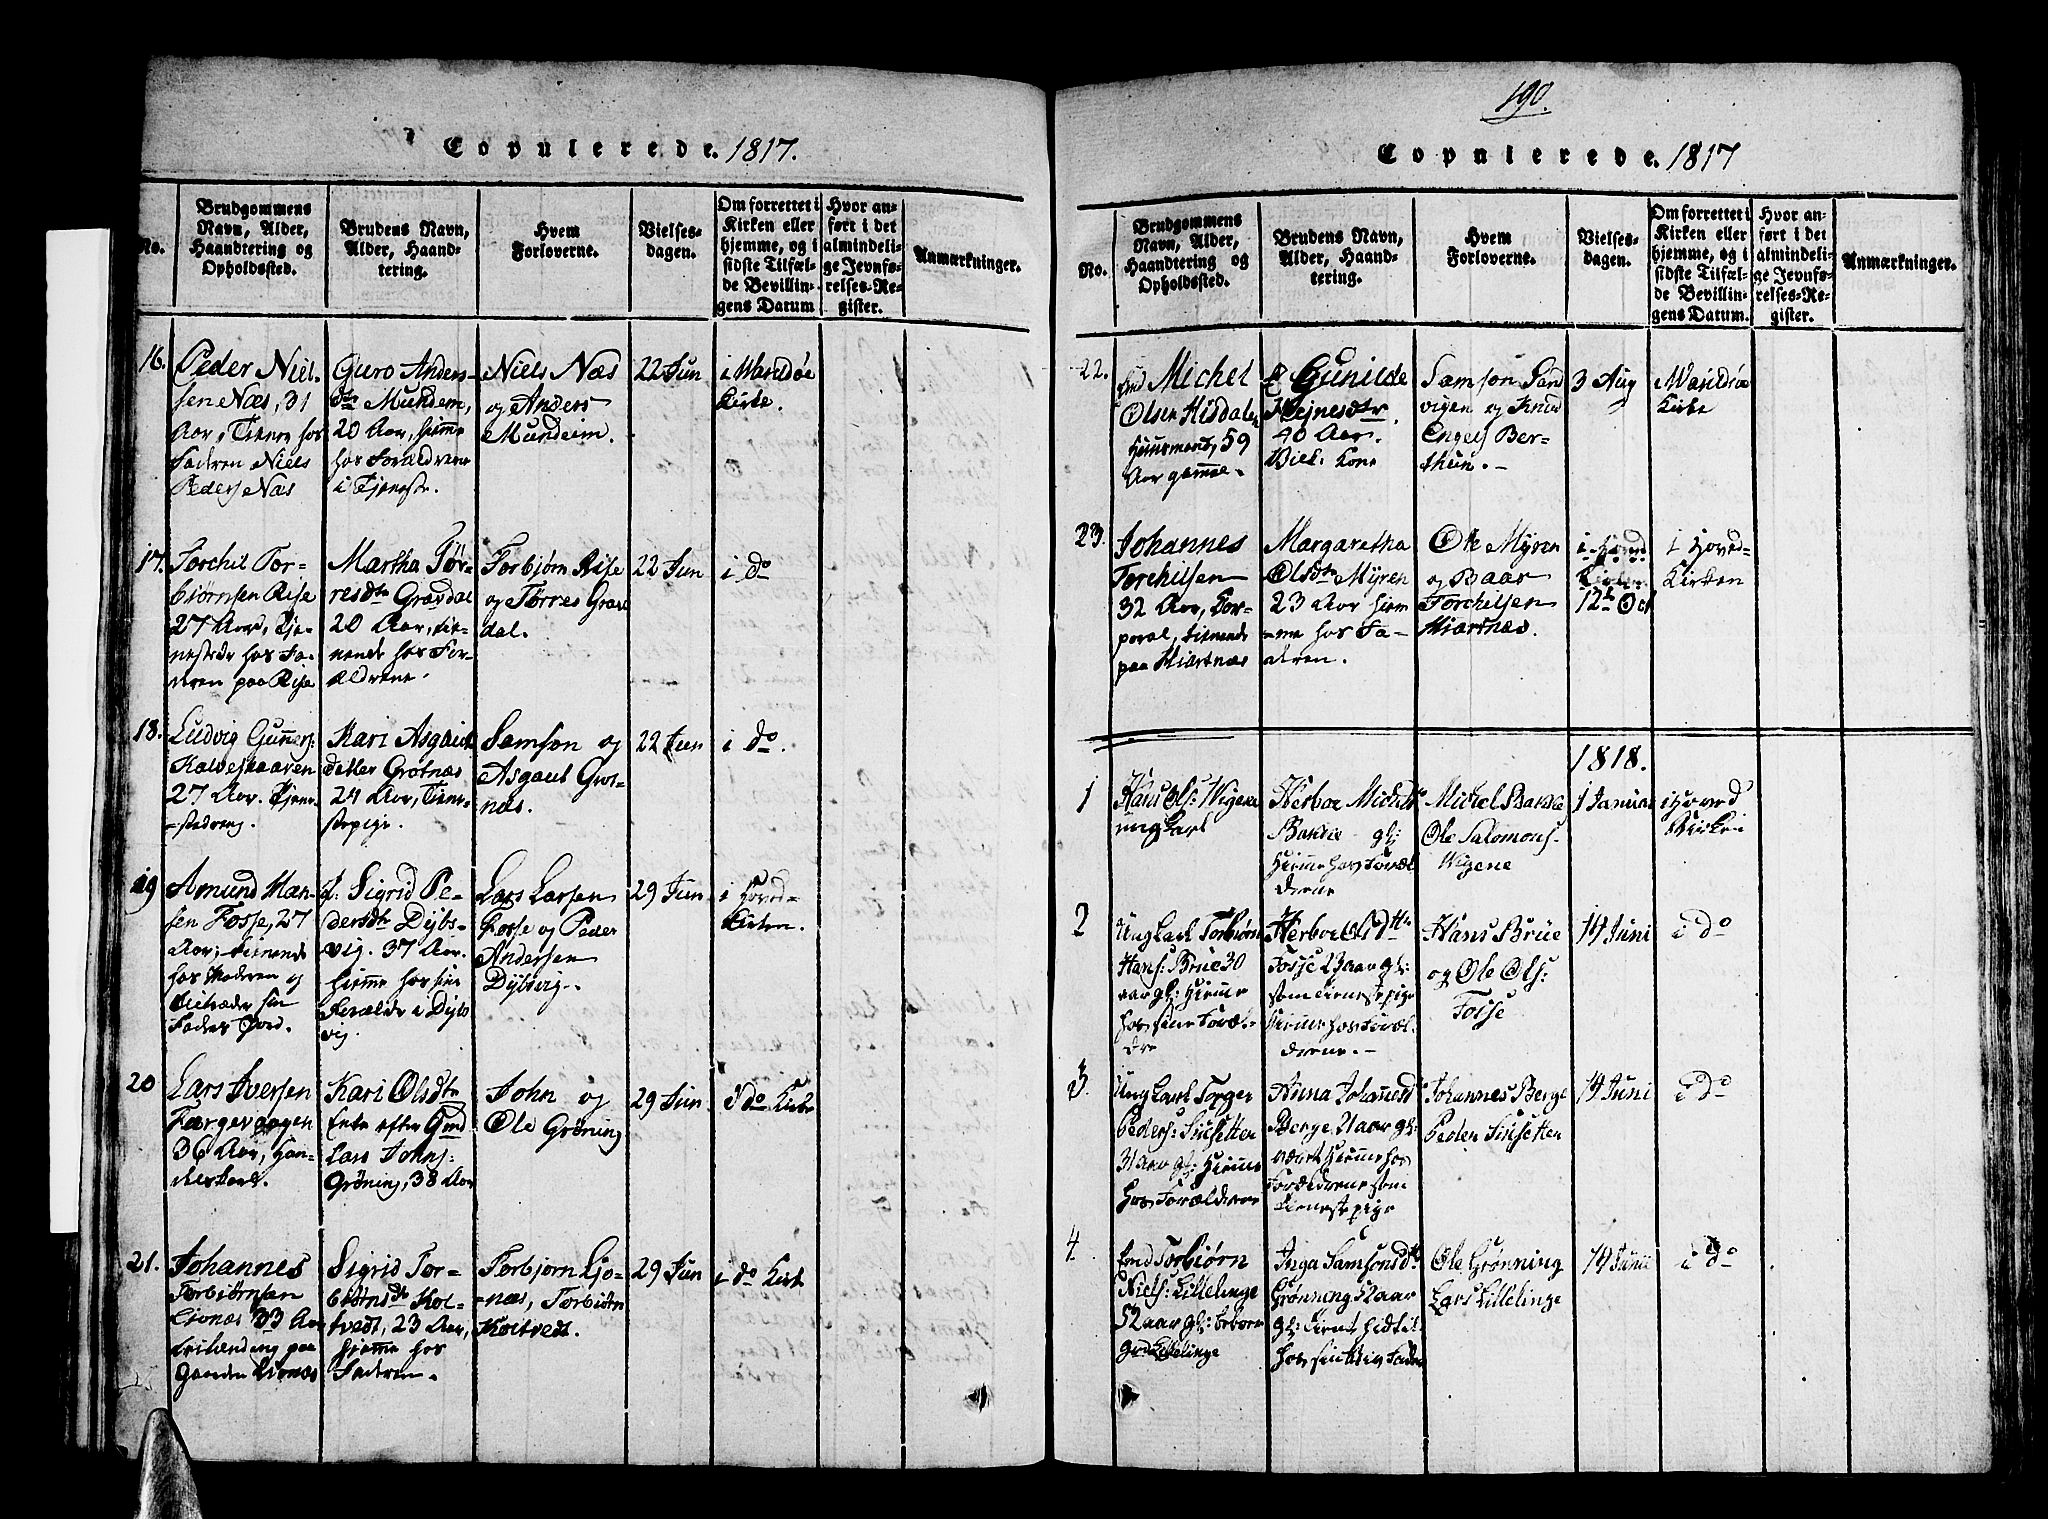 Copulerede. 1817.
No.
Brudgommens
Navn, Alder,
Haandtering og
Opholdssted.
Brudens Navn,
Alder, Haand-
tering.
Hvem
Forloverne.
Vielses-
dagen.
Om forrettet i
Kirken eller
hjemme, og i
sidste Tilfæl-
de Bevillin-
gens Datum
Hvor an-
ført i det
almindeli-
ge Jevnfø-
relses-Re-
gister.
Anmærkninger.
16.
Peder Niel-
sen Næs, 31
Aar, Tiener hos
Faderen Niels
Peders Næs
Guro Anders-
dtr Mundem,
20 Aar, hiemme
hos Forældrene
i Tjeneste.
Niels Næs
og Anders
Mundeim.
22 Jun
i
Kirke.
17.
Torchil Tor-
biørnsen Rise
27 Aar, Tje-
nestedr hos Fa-
deren paa Rise
Martha Tør-
resdtr Gravdal
20 Aar, tie-
nende hos For-
ældrene.
Torbjørn Rise
og Tørres Grav
dal.
22 Jun
i do
18.
Ludvig Guners:
Kalveskaaren
27 Aar. Tjene-
stedreng.
Kari Asgauts
datter Grotnæs
24 Aar, Tiene-
stepige.
Samson og
Asgaut Grot-
næs.
22 Jun
i do.
19
Amund Han-
sen Fosse, 27
Aar, tienende
hos Moderen og
tiltræder sin
Faders Gord.
P. Sigrid Pe-
dersdtr Dybs-
vig. 37 Aar.
hiemme hos sine
Forældre i Dybs
vig.
Lars Larsen
Fosse og Peder
Andersen
Dybsvig.
29 Jun
i Hoved-
Kirken.
20
Lars Iversen
Færgevaagen
36 Aar, Han-
delskarl.
Kari Olsdtr
Enke efter Gmd
Lars Johns:
Grøning, 38 Aar
John og
Ole Grøning
29 Jun.
I do Kirke
21.
Johannes
Torbiørnsen
Lionæs 33 Aar
paa
Gaarden Lionæs
Sigrid Tor-
biørnsdtr Kol-
tvedt, 23 Aar,
hjemme hos
Faderen.
Torbjørn Ljo-
næs, Torbiørn
Koltvedt.
29 Jun
i do Kirk
190.
Copulerede. 1817
No.
Brudgommens
Navn, Alder,
Haandtering og
Opholdssted.
Brudens Navn,
Alder, Haand-
tering.
Hvem
Forloverne.
Vielses-
dagen.
Om forrettet i
Kirken eller
hjemme, og i
sidste Tilfæl-
de Bevillin-
gens Datum.
Hvor an-
ført i det
almindeli-
ge Jevnfø-
relses-Re-
gister.
Anmærkninger.
22.
Michel
Olsen Hisdalen
Huusmand, 59
Aar gammel.
Gunilde
Hejnesdtr.
40 Aar.
Kone
Samson Sand
vigen og Knud
Engels Ber-
thun.
3 Aug
Kirke
23.
Johannes
Torchilsen
32 Aar, Cor-
poral, tienende
paa Hiartnæs
Margaretha
Olsdtr Myren
23 Aar hiem
-me hos Fa-
deren.
Ole Myren
og Baar
Torchilsen
Hiartnæs.
i Hoved
Kirken
12te Oct
i Hoved-
Kirken
1818.
1
Hans Ols: Wigene
ungkarl
Herboe Michels
Bakke gl:
Hiemme hos Foræl
drene
Michel Bakke
Ole Salomons.
Wigene
1 Januar
i Hoved
Kirken
2
Ungkarl Torbiørn
Hans: Brue 30
aar gl: Hiemme
hos sine Foræl-
dre
Herboe Olsdttr
Fosse 23 aar gl:
som tienestepige
Hiemme hos Foræl
drene.
Hans Brue
og Ole Ols:
Fosse
14 Juni
i do
3.
Ungkarl Torger
Peders: Siusetter
31 aar gl: Hiemme
hos Forældrene
Anna Johannesd
Berge 21 aar gl:
været Hiemme hos
Forældrene som
tienestepige
Johannes Berge
Peder Siusetter
14 Juni
i do
4.
Torbiørn
Niels: Lillelinge
52 aar gl:
Lillelinge
Inga Samsonsdtr
Grønning 52 aar
gl: tient hidtil
hos sin
Ole Grønning
Lars Lillelinge
14 Junii
i do